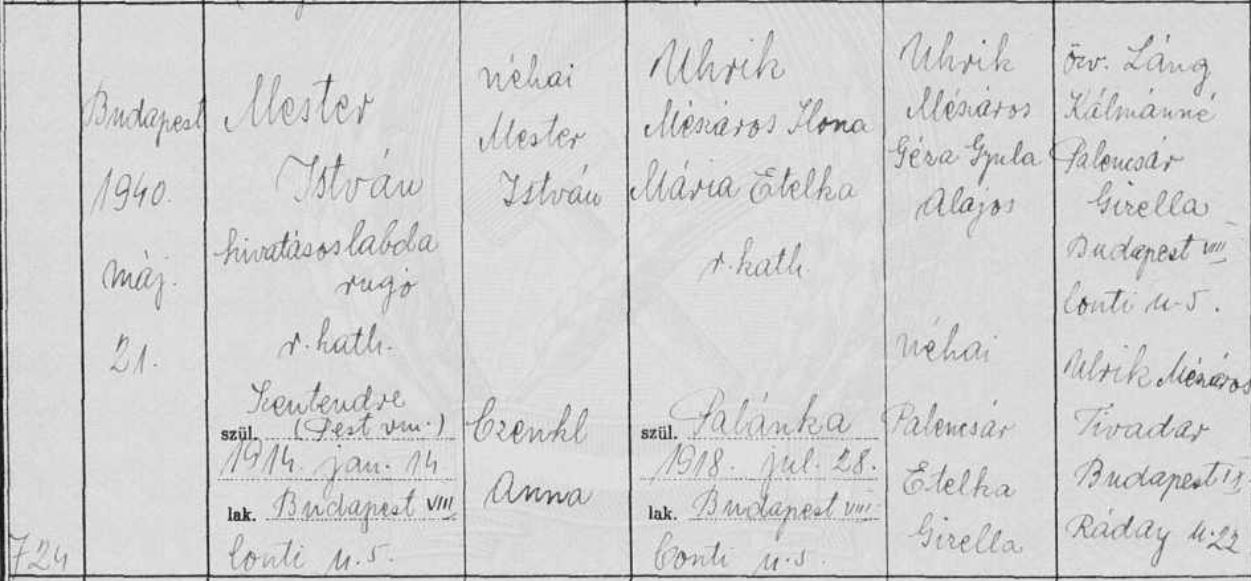 724
Budapest
1940.
máj.
21.
Mester
István
hivatásos labda
rugó
r. kath.
Szentendre
szül. (Pest vm.)
1914. jan. 14
lak. Budapest VIII
Conti u. 5.
néhai
Mester
István
Czenkl
Anna
Uhrik
Mészáros Ilona
Mária Etelka
r. kath
szül. Palánka
1918. jul. 28.
lak. Budapest VIII
Conti u. 5.
Uhrik
Mészáros
Géza Gyula
Alajos
néhai
Palencsár
Etelka
Gizella
özv. Láng
Kálmánné
Palencsár
Gizella
Budapest VIII
Conti u. 5.
Uhrik Mészáros
Tivadar
Budapest IX
Ráday u. 22